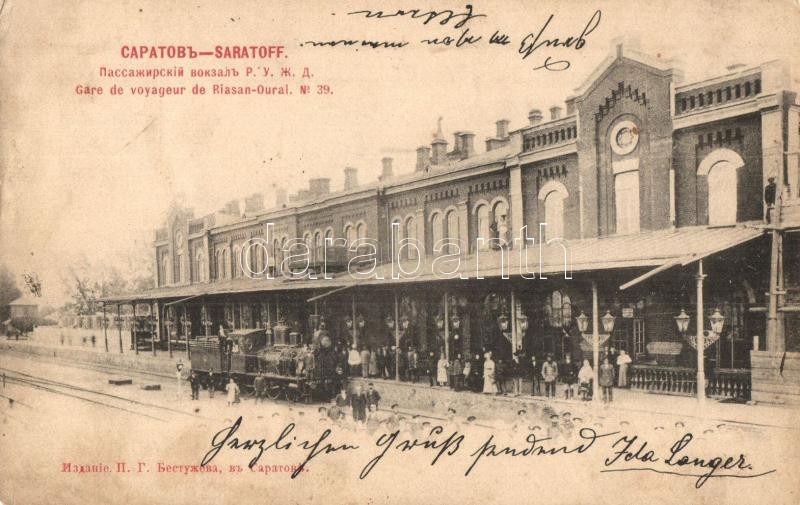 САРАТОВЪ—SARATOFF.
Пассажирскій вокзалъ Р. У. Ж. Д.
Gare de voyageur de Riasan-Oural. № 39.
darabanth
Herzlichen Gruß sendend Ida Langer.
Изданіе. П. Г. Бестужева, въ Саратовѣ.